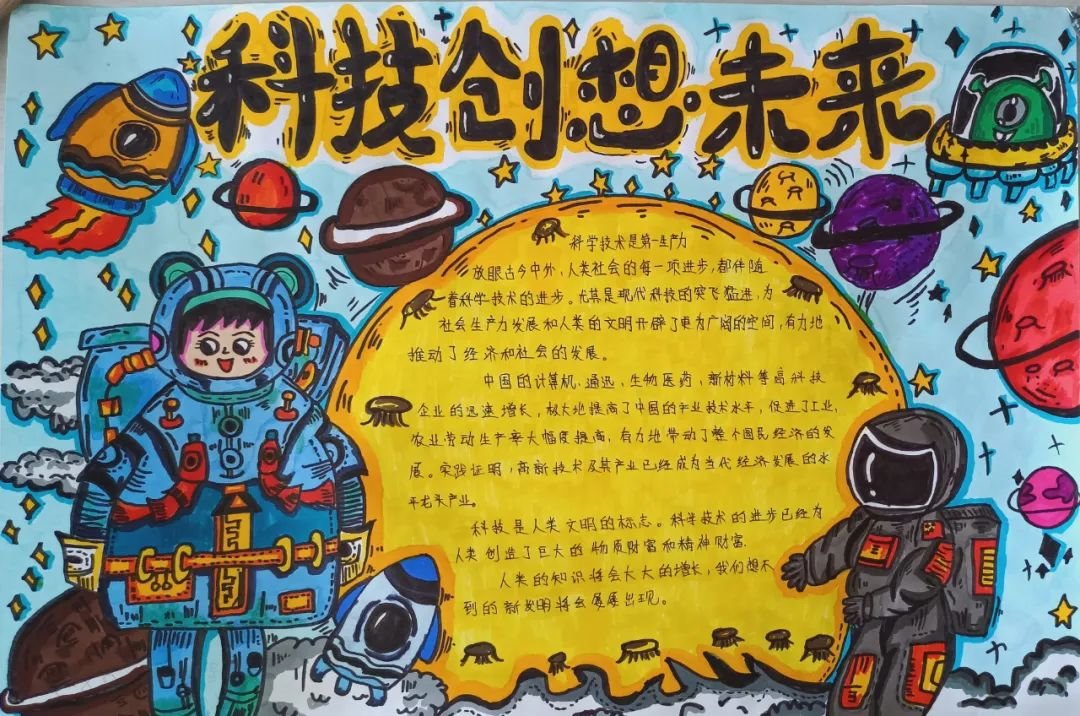 科技创想·未来
科学技术是第一生产力
放眼古今中外,人类社会的每一项进步,都伴随
着科学技术的进步。尤其是现代科技的突飞猛进,为
社会生产力发展和人类的文明开辟了更为广阔的空间,有力地
推动了经济和社会的发展。
中国的计算机、通迅、生物医药、新材料等高科技
企业的迅速增长,极大地提高了中国的产业技术水平,促进了工业、
农业劳动生产率大幅度提高,有力地带动了整个国民经济的发
展。实践证明,高新技术及其产业已经成为当代经济发展的水
平龙头产业。
科技是人类文明的标志。科学技术的进步已经为
人类创造了巨大的物质财富和精神财富.
人类的知识将会大大的增长,我们想不
到的新发明将会屡屡出现。